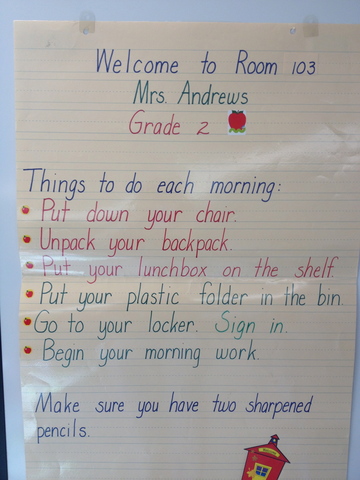 Welcome to Room 103
Mrs. Andrews
Grade 2
Things to do each morning:
Put down your chair.
Unpack your backpack.
Put your lunchbox on the shelf.
Put your plastic folder in the bin.
Go to your locker. Sign in.
Begin your morning work.
Make sure you have two sharpened
pencils.